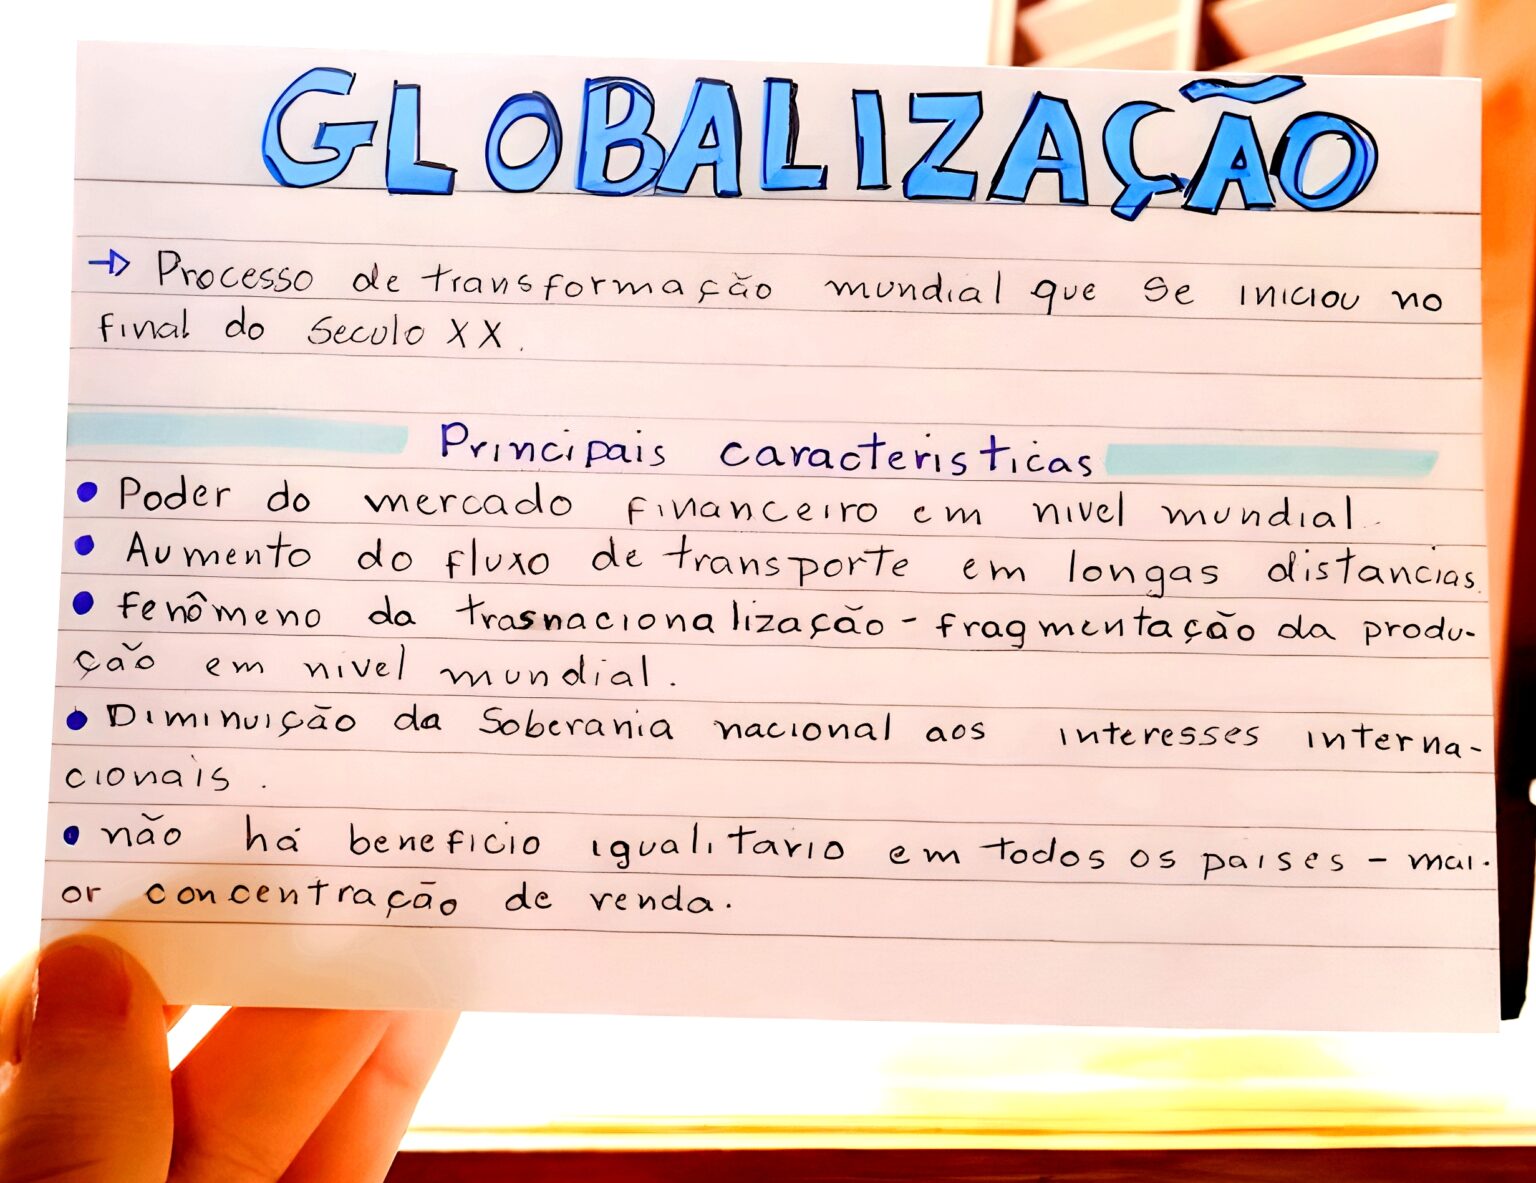 GLOBALIZAÇÃO
→ Processo de transformação mundial que se iniciou no
final do Seculo XX.
Principais caracteristicas
• Poder do mercado financeiro em nivel mundial.
• Aumento do fluxo de transporte em longas distancias.
• fenômeno da trasnacionalização - fragmentação da produ-
ção em nivel mundial.
• Diminuição da Soberania nacional aos interesses interna-
cionais.
• não há beneficio igualitario em todos os paises - mai-
or concentração de renda.